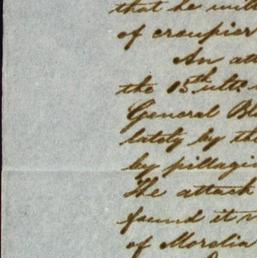 that he will
of croupier
An att
the 15th ulto
General Bl
lately by the
by pillagi
The attack
found it n
of Morelia